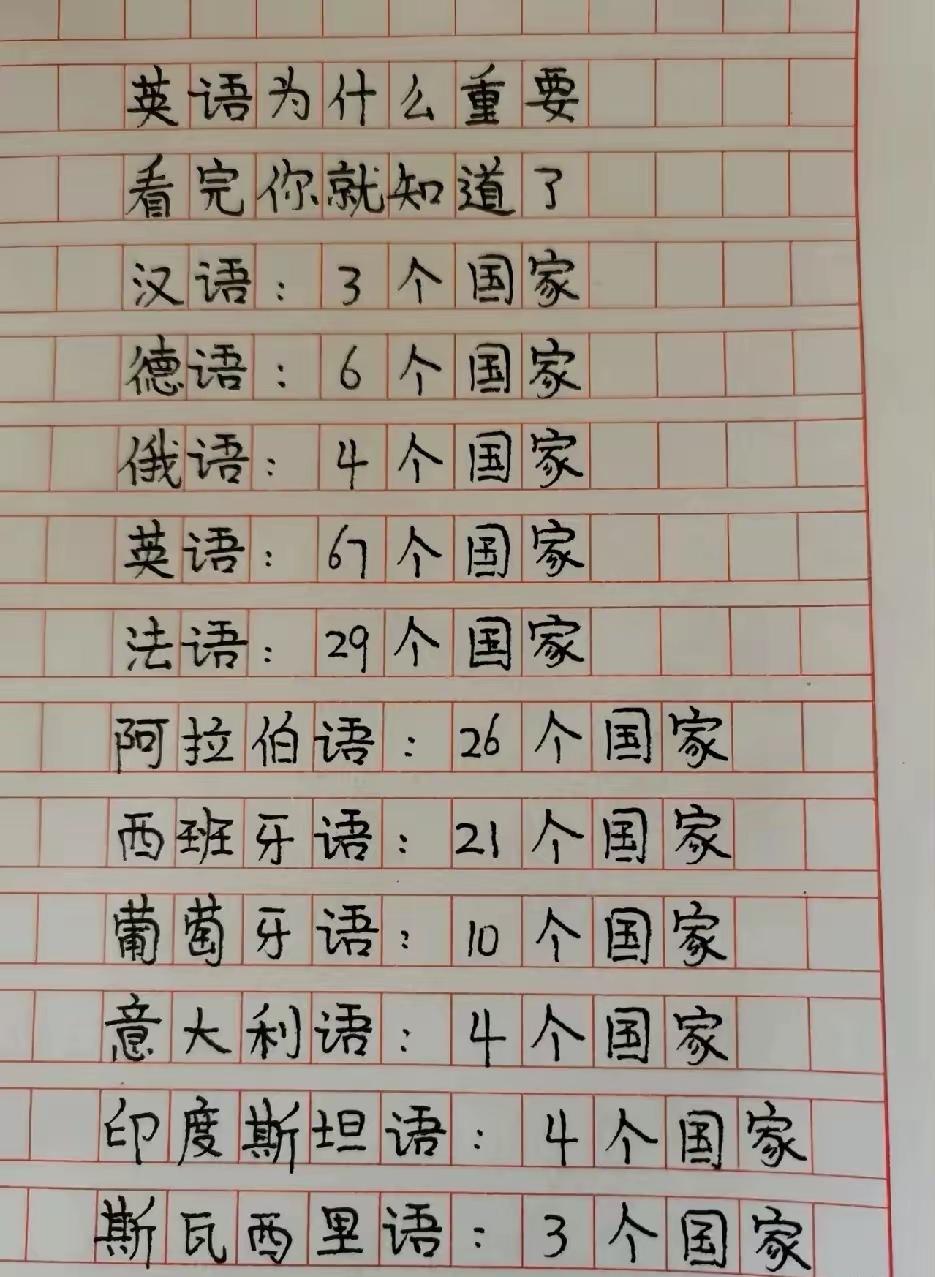 英语为什么重要
看完你就知道了
汉语：3个国家
德语：6个国家
俄语：4个国家
英语：67个国家
法语：29个国家
阿拉伯语：26个国家
西班牙语：21个国家
葡萄牙语：10个国家
意大利语：4个国家
印度斯坦语：4个国家
斯瓦西里语：3个国家